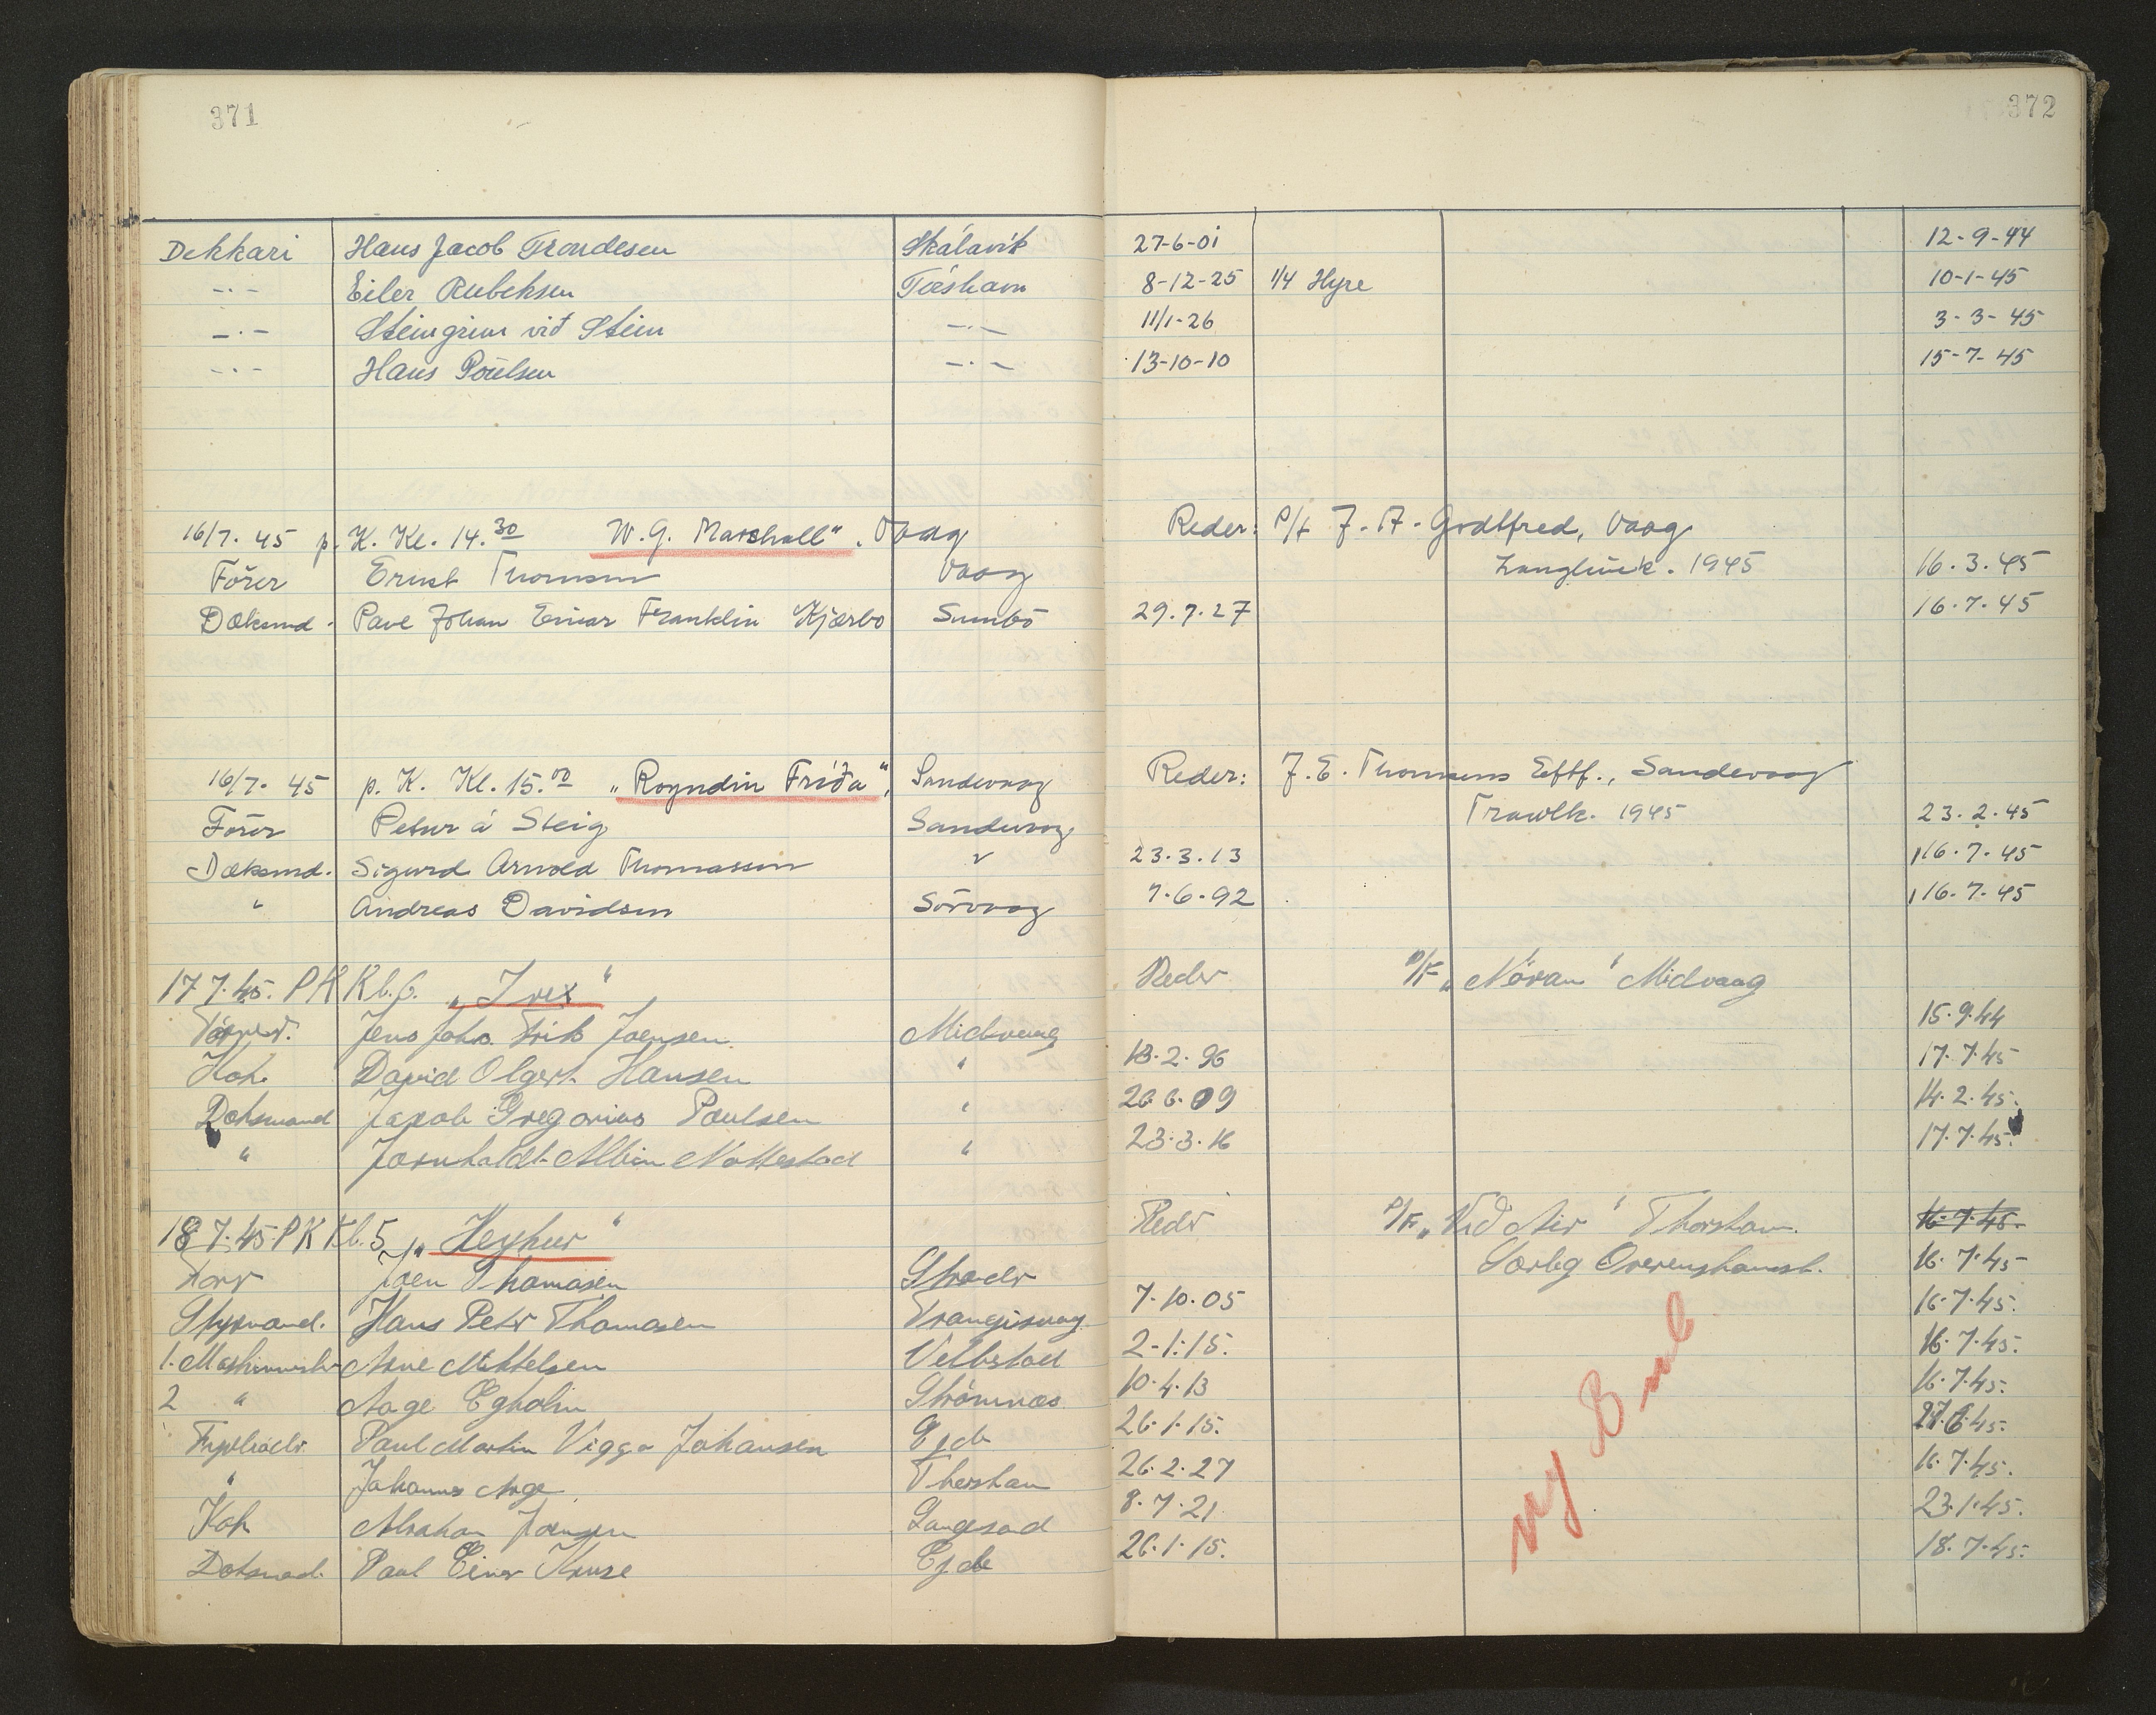 371
372
Dekkari Hans Jacob Trondesen Skálavík 27-6-01 12-9-44
-·- Eiler Rubeksen Tórshavn 8-12-25 1/4 Hyre 10-1-45
-·- Steingrim við Stein -·- 11/1-26 3-3-45
-·- Hans Poulsen -·- 13-10-10 15-7-45
16/7. 45 p. K. Kl. 14.30 W. G. Marshall", Vaag Reder: P/f J. A. Godtfred, Vaag
Förer Ernst Thomsen Vaag 1945 16.3.45
Dæksmd. Paul Johan Einar Franklin Kjærbo Sumbö 29.7.27 16.7.45
16/7. 45 p. K. Kl. 15.00 „Royndin Fríða", Sandevaag Reder: J. E. Thomsens Eftf., Sandevaag
Förer Petur á Steig Sandevaag Trawlk. 1945 23.2.45
Dæksmd. Sigurd Arnold Thomassen " 23.3.13 16.7.45
" Andreas Davidsen Sörvaag 7.6.92 16.7.45
17 7.45. P K Kl. 6. „Irex" Reder P/F „Nöran" Midvaag
Jens Johs. Erik Joensen Midvaag 15.9.44
Kok David Olgert Hansen " 13.2.96 17.7.45
Daksmand Jacob Gregorius Poulsen " 26 6.09 14.2.45.
" Albin Nattestad " 23.3.16 17.7.45.
18 7.45 P K Kl. 5 „Heykur" Reder P/F „Vid Air" Thorshavn. 16.7.45.
Förer Joen Thomasen Overenskomst. 16.7.45
Styrmand. Hans Peter Thomasen Trangisvaag 7.10.05 16.7.45.
1. Maskinmester Arne Mikkelsen Velbstad 2-1.15. 16.7.45.
2 " Aage Egholm Strömnæs 10.4.13 16.7.45.
Fyrböder. Paul Martin Viggo Johansen Ejde 26.1.15. 45.
" Johannes Aage Thorshavn 26.2.27 16.7.45.
Kok Abraham Joensen Langesad 8.7.21 23.1.45.
Daksmad. Paul Einer Kruse Ejde 26.1.15. 18.7.45.